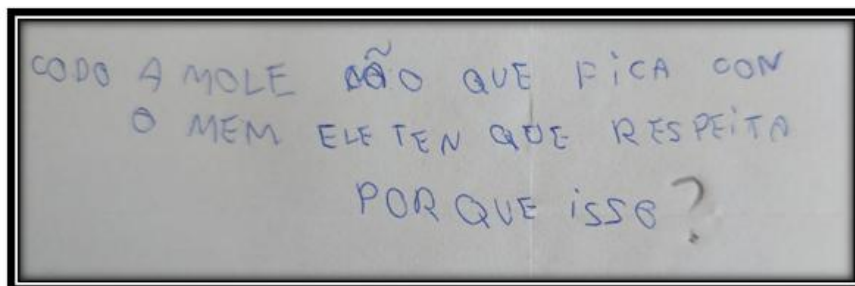 CODO A MOLE NÃO QUE FICA CON
O MEM ELE TEN QUE RESPEITA
POR QUE ISSO?